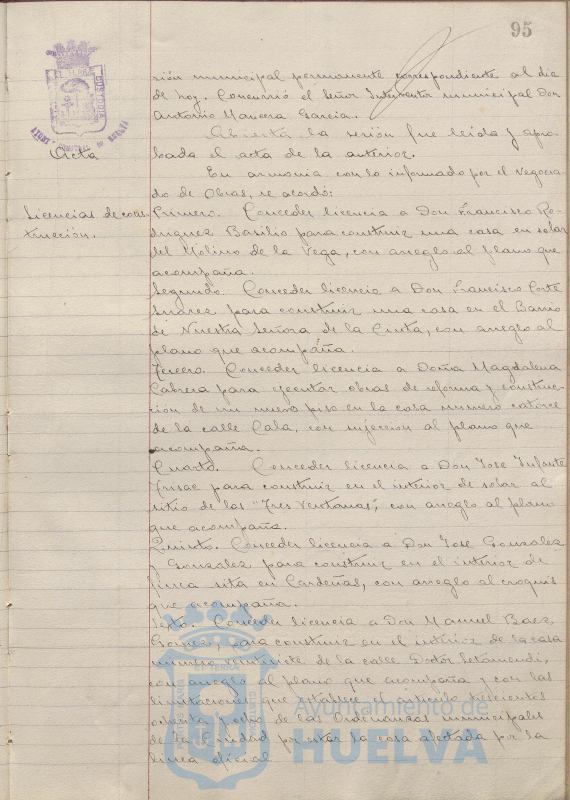 95
sión municipal permanente correspondiente al dia
de hoy. Concurrió el Señor Interventor municipal Don
Antonio Mancera Garcia.
Abierta la sesión fue leida y apro-
Acta
bada el acta de la anterior.
En armonia con lo informado por el Negocia-
do de Obras, se acordó:
Licencias de cons-
trucción.
Primero. Conceder licencia a Don Francisco Ro-
driguez Basilio para construir una casa en solar
del Molino de la Vega, con arreglo al plano que
acompaña.
Segundo. Conceder licencia a Don Francisco Corte
Suarez para construir una casa en el Barrio
de Nuestra Señora de la Cinta, con arreglo al
plano que acompaña.
Tercero. Conceder licencia a Doña Magdalena
Cabrera para ejecutar obras de reforma y construc-
ción de un nuevo piso en la casa numero catorce
de la calle Cala, con sujeccion al plano que
acompaña.
Cuarto. Conceder licencia a Don Jose Infante
para construir en el interior de solar al
sitio de las "Tres Ventanas", con arreglo al plano
que acompaña.
Quinto. Conceder licencia a Don Jose Gonzalez
y Gonzalez para construir en el interior de
finca sita en Cardeñas, con arreglo al croquis
que acompaña.
Sexto. Conceder licencia a Don Manuel Baez
Gomez, para construir en el interior de la casa
numero veintisiete de la calle Doctor Letamendi,
con arreglo al plano que acompaña y con las
limitaciones que establece el articulo trescientos
ochenta y ocho de las Ordenanzas municipales
de la Ciudad por estar la casa afectada por la
linea oficial
Ayuntamiento de
HUELVA